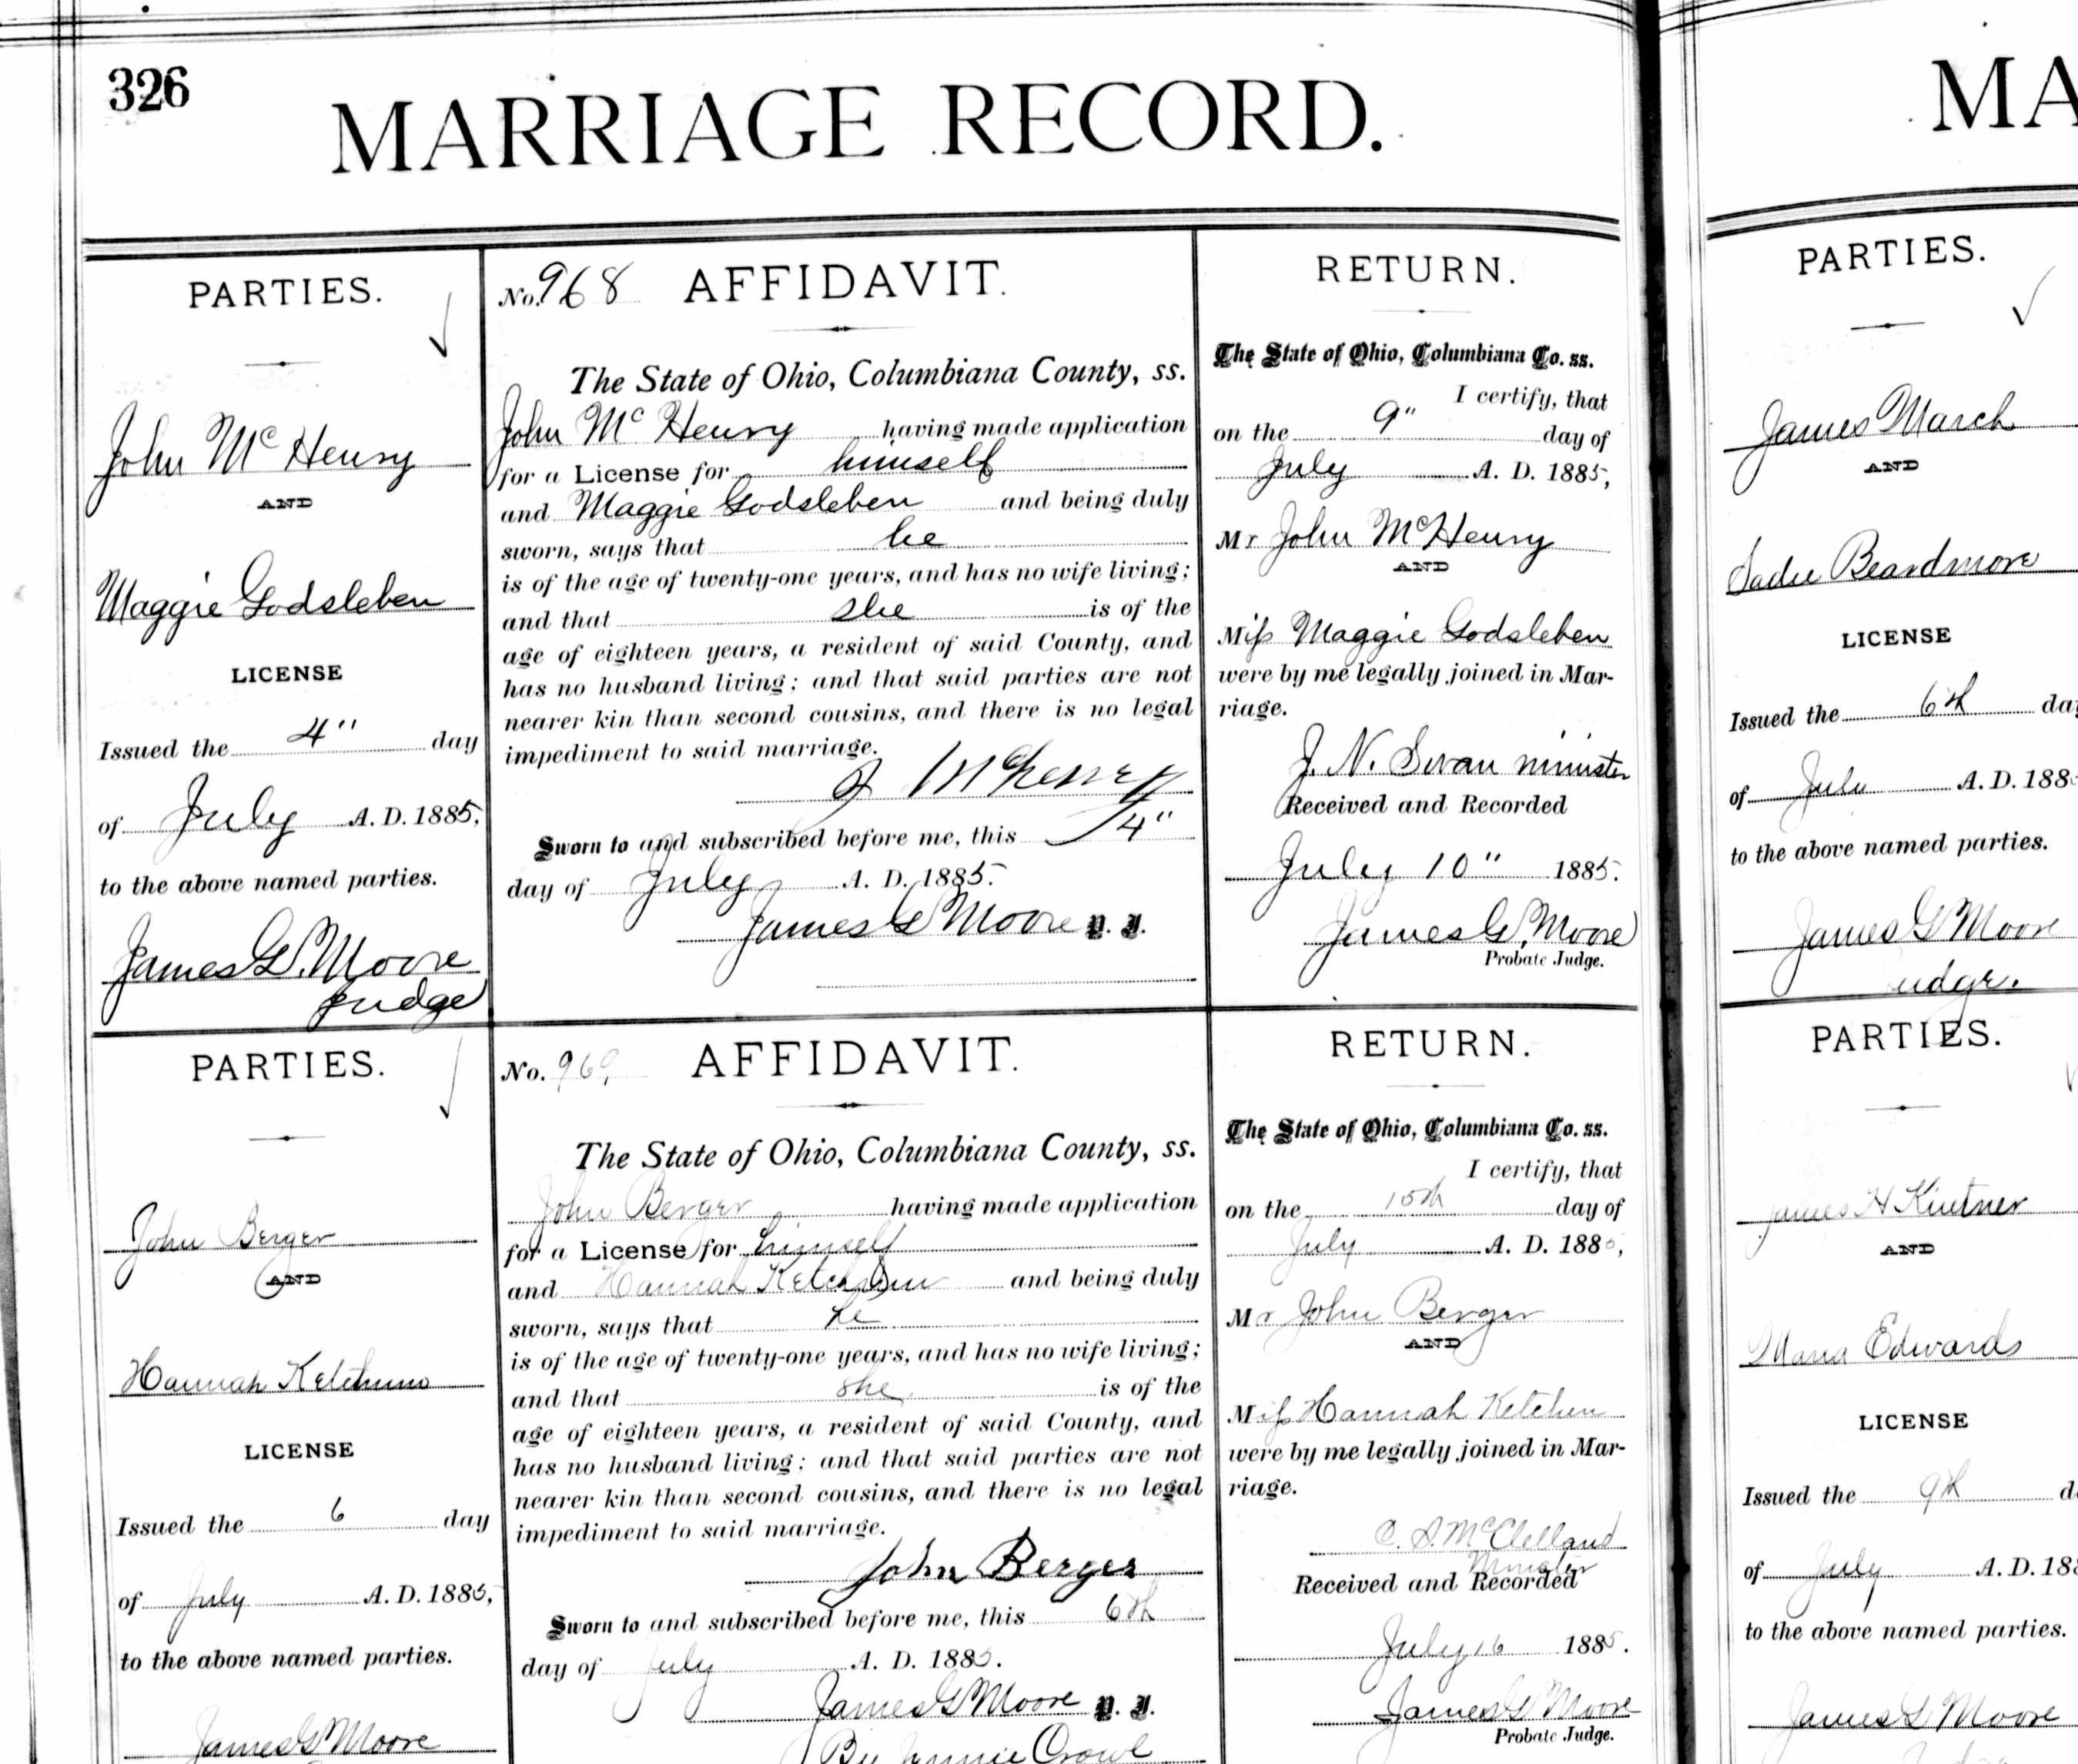 326
MARRIAGE RECORD.
PARTIES.
John Mc Henry
AND
Maggie Godsleben
LICENSE
Issued the 4" day
of July A. D. 1885,
to the above named parties.
James G. Moore
Judge
No. 968 AFFIDAVIT.
The State of Ohio, Columbiana County, ss.
John Mc Henry having made application
for a License for himself
and Maggie Godsleben and being duly
sworn, says that he
is of the age of twenty-one years, and has no wife living;
and that she is of the
age of eighteen years, a resident of said County, and
has no husband living; and that said parties are not
nearer kin than second cousins, and there is no legal
impediment to said marriage.
J McHenry
Sworn to and subscribed before me, this 4"
day of July A. D. 1885.
James G Moore P. J.
RETURN.
The State of Ohio, Columbiana Co. ss.
I certify, that
on the 9" day of
July A. D. 1885,
Mr John McHenry
AND
Miss Maggie Godsleben
were by me legally joined in Mar-
riage.
J. N. Swan minister
Received and Recorded
July 10" 1885.
James G. Moore
Probate Judge.
PARTIES.
John Berger
AND
Hannah Ketchum
LICENSE
Issued the 6 day
of July A. D. 1885,
to the above named parties.
James G Moore
No. 969 AFFIDAVIT.
The State of Ohio, Columbiana County, ss.
John Berger having made application
for a License for himself
and Hannah and being duly
sworn, says that he
is of the age of twenty-one years, and has no wife living;
and that she is of the
age of eighteen years, a resident of said County, and
has no husband living; and that said parties are not
nearer kin than second cousins, and there is no legal
impediment to said marriage.
John Berger
Sworn to and subscribed before me, this 6th
day of July A. D. 1885.
James G Moore P. J.
By Jennie Crowl
RETURN.
The State of Ohio, Columbiana Co. ss.
I certify, that
on the 15th day of
July A. D. 1885,
Mr John Berger
AND
Miss Hannah Ketchen
were by me legally joined in Mar-
riage.
C. S. McClelland
Minister
Received and Recorded
July 16 1885.
James G Moore
Probate Judge.
MA
PARTIES.
James March
AND
Sadie Beardmore
LICENSE
Issued the 6th day
of July A. D. 188
to the above named parties.
James G Moore
Judge.
PARTIES.
James H Kintner
AND
Maria Edwards
LICENSE
Issued the 9th d
of July A. D. 188
to the above named parties.
James G Moore